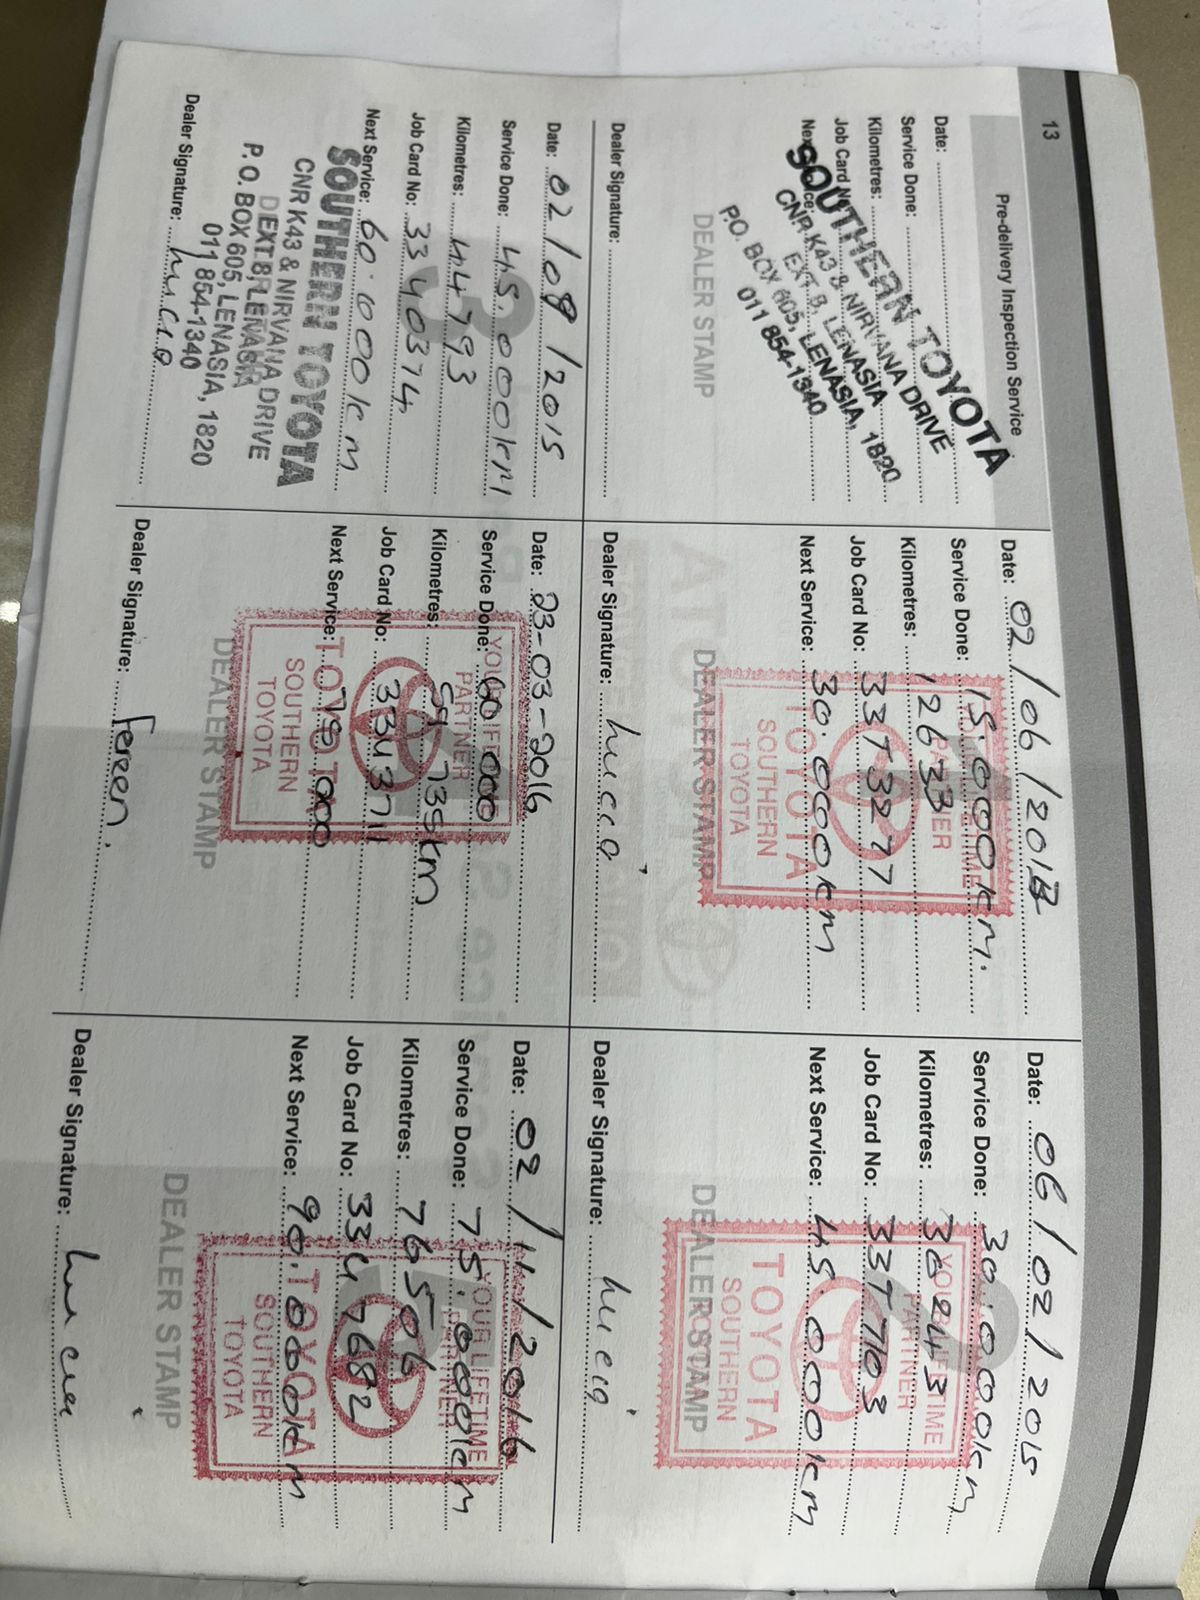 13
Pre-delivery Inspection Service
Date:
Service Done:
Kilometres:
Job Card No:
SOUTHERN TOYOTA
CNR K43 & NIRVANA DRIVE
EXT. 8, LENASIA
P.O. BOX 605, LENASIA, 1820
011 854-1340
DEALER STAMP
Dealer Signature:
Date: 02/06/201
Service Done: 15.000km.
Kilometres: 12633
Job Card No: 33T3277
Next Service: 30.000km
YOUR LIFETIME
PARTNER
TOYOTA
SOUTHERN
TOYOTA
DEALER STAMP
Dealer Signature:
Date: 06/02/2015
Service Done: 30.000km
Kilometres: 30243
Job Card No: 33T7103
Next Service: 45.000km
YOUR LIFETIME
PARTNER
TOYOTA
SOUTHERN
TOYOTA
DEALER STAMP
Dealer Signature:
Date: 02/08/2015
Service Done: 45.000km
Kilometres: 44793
Job Card No: 3340374
Next Service: 60.000km
SOUTHERN TOYOTA
CNR K43 & NIRVANA DRIVE
EXT. 8, LENASIA
P.O. BOX 605, LENASIA, 1820
011 854-1340
Dealer Signature:
Date: 23-03-2016
Service Done: 60 000
Kilometres: 59 735km
Job Card No: 3343711
Next Service:
YOUR LIFETIME
PARTNER
TOYOTA
SOUTHERN
TOYOTA
DEALER STAMP
Dealer Signature: Fereen.
Date: 02/11/2016
Service Done: 75.000km
Kilometres: 76506
Job Card No: 3347682
Next Service: 90.000km
YOUR LIFETIME
PARTNER
TOYOTA
SOUTHERN
TOYOTA
DEALER STAMP
Dealer Signature: